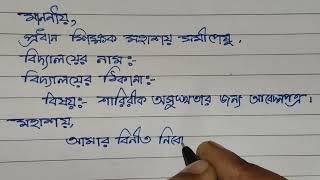 মাননীয়,
প্রধান শিক্ষক মহাশয় সমীপেষু
বিদ্যালয়ের নাম:-
বিদ্যালয়ের ঠিকানা:-
বিষয়:- শারিরীক অসুস্থতার জন্য আবেদনপত্র।
মহাশয়,
আমার বিনীত নিবে